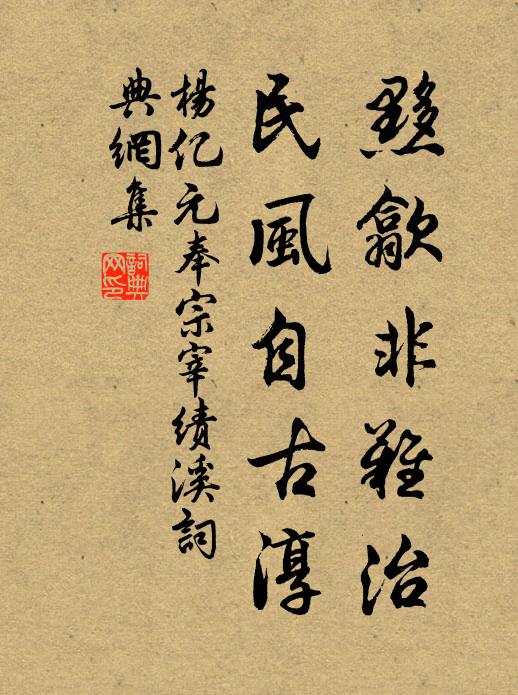 黟歙非難治
民風自古淳
楊亿元奉宗宰績溪詞
典網集
詞典网印